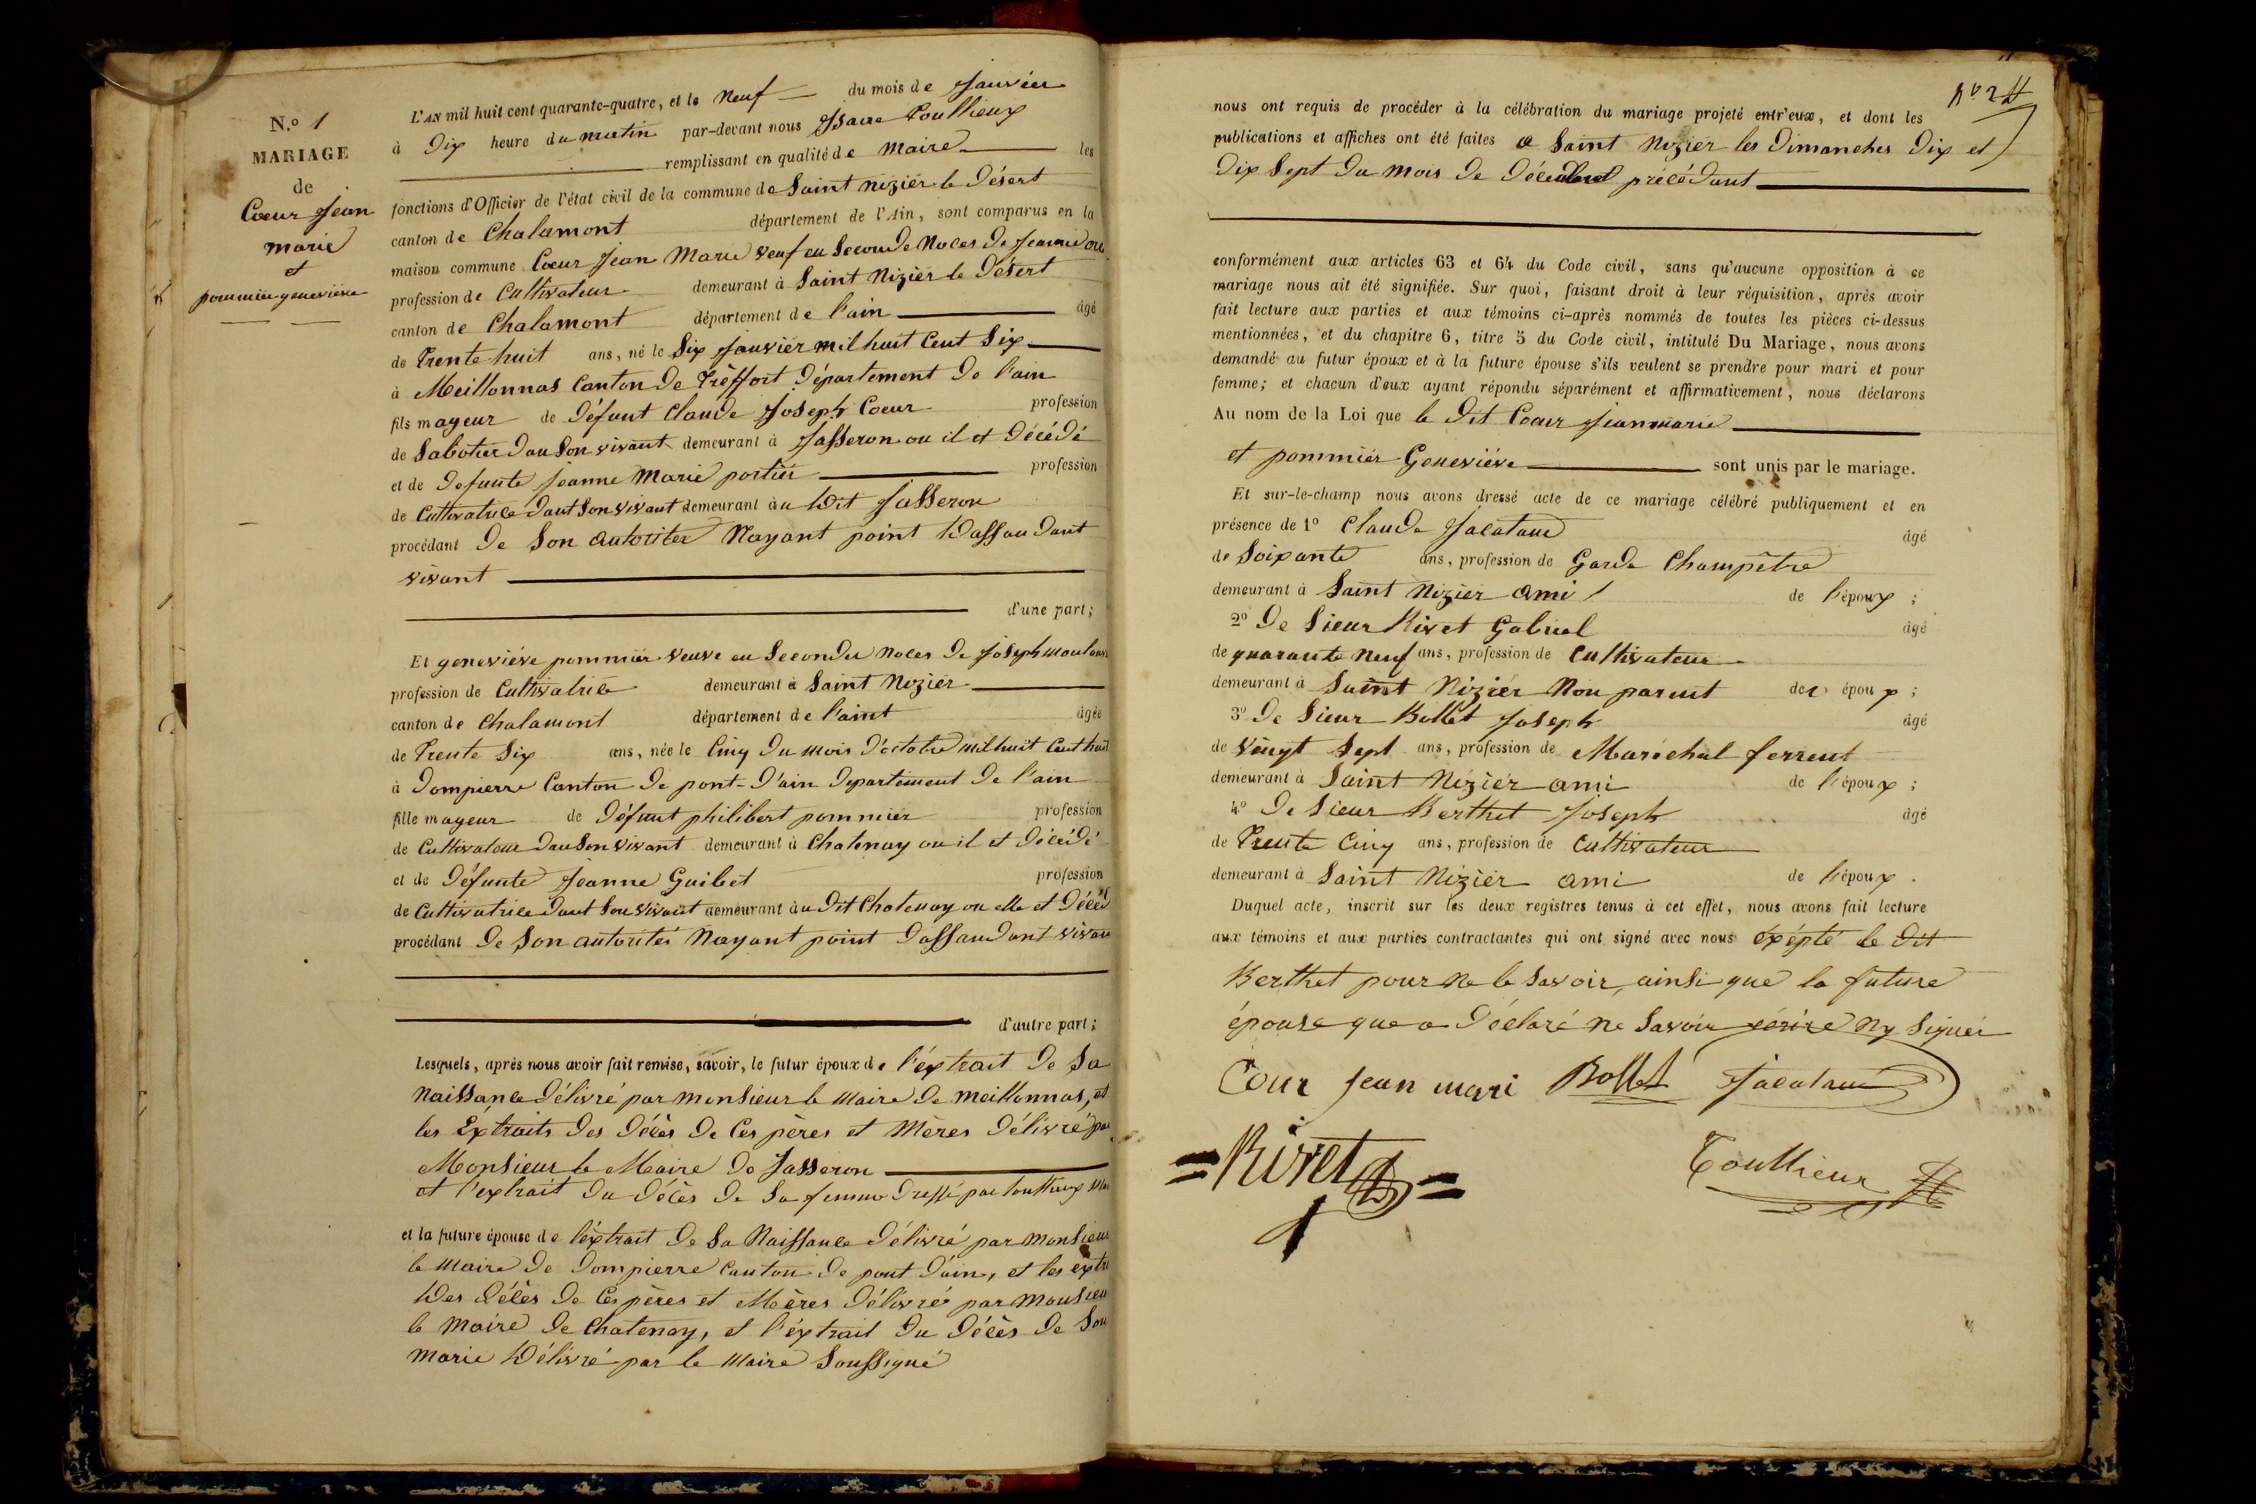 N.o 1
MARIAGE
de
Coeur Jean
marie
et
pommier genevieve
L'AN mil huit cent quarante-quatre, et le Neuf du mois de Janvier
à Dix heure du matin par-devant nous Isaac Toullieux
remplissant en qualité de Maire les
fonctions d'Officier de l'état civil de la commune de Saint nizier le Désert
canton de Chalamont département de l'Ain, sont comparus en la
maison commune Coeur Jean Marie veuf en Seconde Noces de Jeanne
profession de Cultivateur demeurant à Saint Nizier le Désert
canton de Chalamont département de l'ain âgé
de Trente huit ans, né le Six Janvier mil huit Cent Six
à Meillonnas Canton de Tréffort Département De l'ain
fils mayeur de défunt Claude Joseph Coeur profession
de Sabotier dau Son vivant demeurant à Jasseron ou il et Décédé
et de defunte Jeanne Marie portier profession
de Cultivatrice dant Son vivant demeurant au dit Jasseron
procédant De Son autoritée Nayant point Dassandant
vivant
d'une part;
Et geneviéve pommier veuve en Secondee noces De Joseph
profession de Cultivatrice demeurant à Saint Nizier
canton de Chalamont département de l'aint âgée
de Trente Six ans, née le Cinq Du mois D'octobre mil huit Cent huit
à Dompierre Canton De pont-D'ain Departement De l'ain
fille mayeur de Défunt philibert pommier profession
de Cultivateur dau Son vivant demeurant à Chatenay ou il et Décédé
et de Défunte Jeanne Guibet profession
de Cultivatrice Dant Son vivant demeurant au Dit Chatenay ou elle et Décéd
procédant De Son autorités Nayant point Dassandant vivan
d'autre part;
Lesquels, après nous avoir fait remise, savoir, le futur époux de l'éxtrait De Sa
Naissance Délivré par Monsieur le Maire De Meillonnas, et
les Éxtraits Des Décès De Ces pères et Mères Délivré par
Monsieur le Maire De Jasseron
et l'extrait du décès de Sa femme Dressé par Toullieux Mai
et la future épouse de l'éxtrait De Sa Naissance Délivré par Monsieur
le Maire De Dompierre Canton De pont D'ain, et les éxtr
Des Décès De Ces pères et Mères Délivré par Monsieu
le Maire De Chatenay, et l'éxtrait Du Décès De Son
Marie Délivré par le Maire Soussigné
No 2
nous ont requis de procéder à la célébration du mariage projeté entr'eux, et dont les
publications et affiches ont été faites a Saint Nizier les Dimanches Dix et
Dix Sept Du mois De Décembre précédant
conformément aux articles 63 et 64 du Code civil, sans qu'aucune opposition à ce
mariage nous ait été signifiée. Sur quoi, faisant droit à leur réquisition, après avoir
fait lecture aux parties et aux témoins ci-après nommés de toutes les pièces ci-dessus
mentionnées, et du chapitre 6, titre 5 du Code civil, intitulé Du Mariage, nous avons
demandé au futur époux et à la future épouse s'ils veulent se prendre pour mari et pour
femme; et chacun d'eux ayant répondu séparément et affirmativement, nous déclarons
Au nom de la Loi que le Dit Coeur Jean marie
et pommier Geneviéve sont unis par le mariage.
Et sur-le-champ nous avons dressé acte de ce mariage célébré publiquement et en
présence de 1o Claude Jacataud âgé
de Soixante ans, profession de Garde Champêtre
demeurant à Saint Nizier ami de l'époux ;
2o De Sieur Rivet Gabriel âgé
de quarante Neuf ans, profession de Cultivateur
demeurant à Saint Nizier Non parent des époux ;
3o De Sieur Bollet Joseph âgé
de vingt Sept ans, profession de Maréchal ferrent
demeurant à Saint Nizier ami de l'époux ;
4o De Sieur Berthet Joseph âgé
de Trente Cinq ans, profession de Cultivateur
demeurant à Saint Nizier ami de l'époux .
Duquel acte, inscrit sur les deux registres tenus à cet effet, nous avons fait lecture
aux témoins et aux parties contractantes qui ont signé avec nous éxépté le Dit
Berthet pour Ne le Savoir, ainsi que la future
épouse que a Déclaré ne Savoir écrire Ny Signér
Cour Jean mari Bollet Jacataud
Rivet
Toullieux